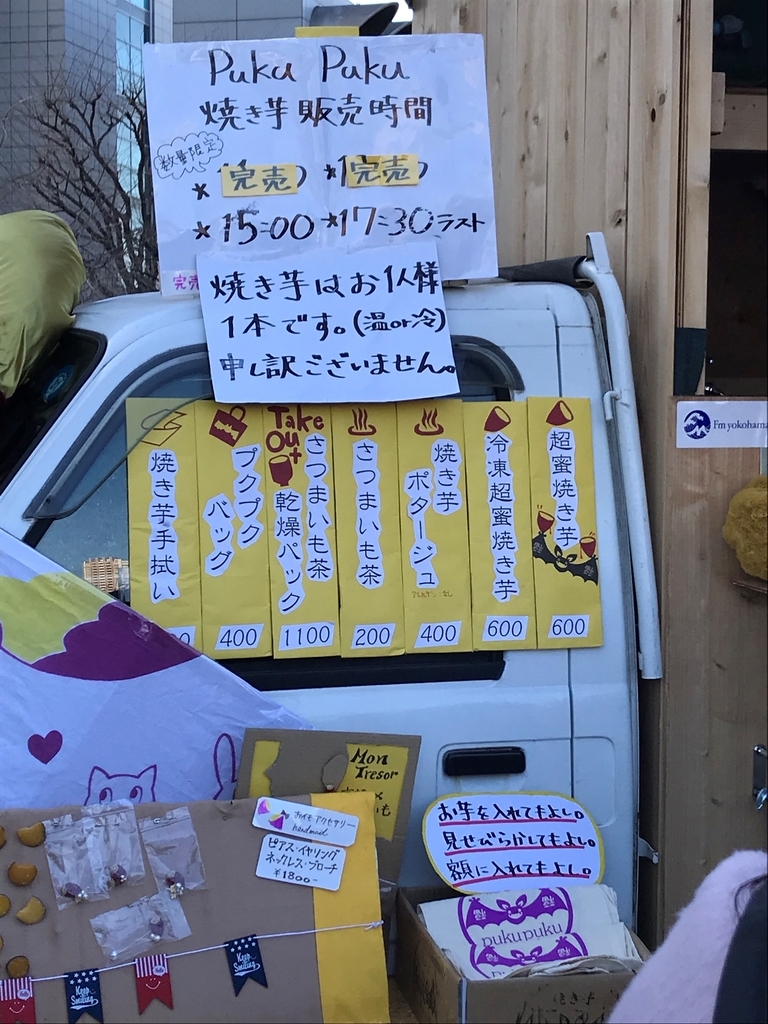 Puku Puku
焼き芋販売時間
数量限定
* 完売 * 完売
* 15:00 * 17:30ラスト
完売
焼き芋はお1人様
1本です。(温or冷)
申し訳ございません。
焼き芋手拭い
プクプクバッグ
400
Take Out
さつまいも茶
乾燥パック
1100
さつまいも茶
200
焼き芋
ポタージュ
400
冷凍超蜜焼き芋
600
超蜜焼き芋
600
Fm yokohama
Mon
Tresor
お芋を入れてもよし。
見せびらかしてもよし。
額に入れてもよし。
pukupuku
おイモアクセサリー
handmaid
ピアス・イヤリング
ネックレス・ブローチ
¥1800-
Keep
Smiling
Keep
Smiling